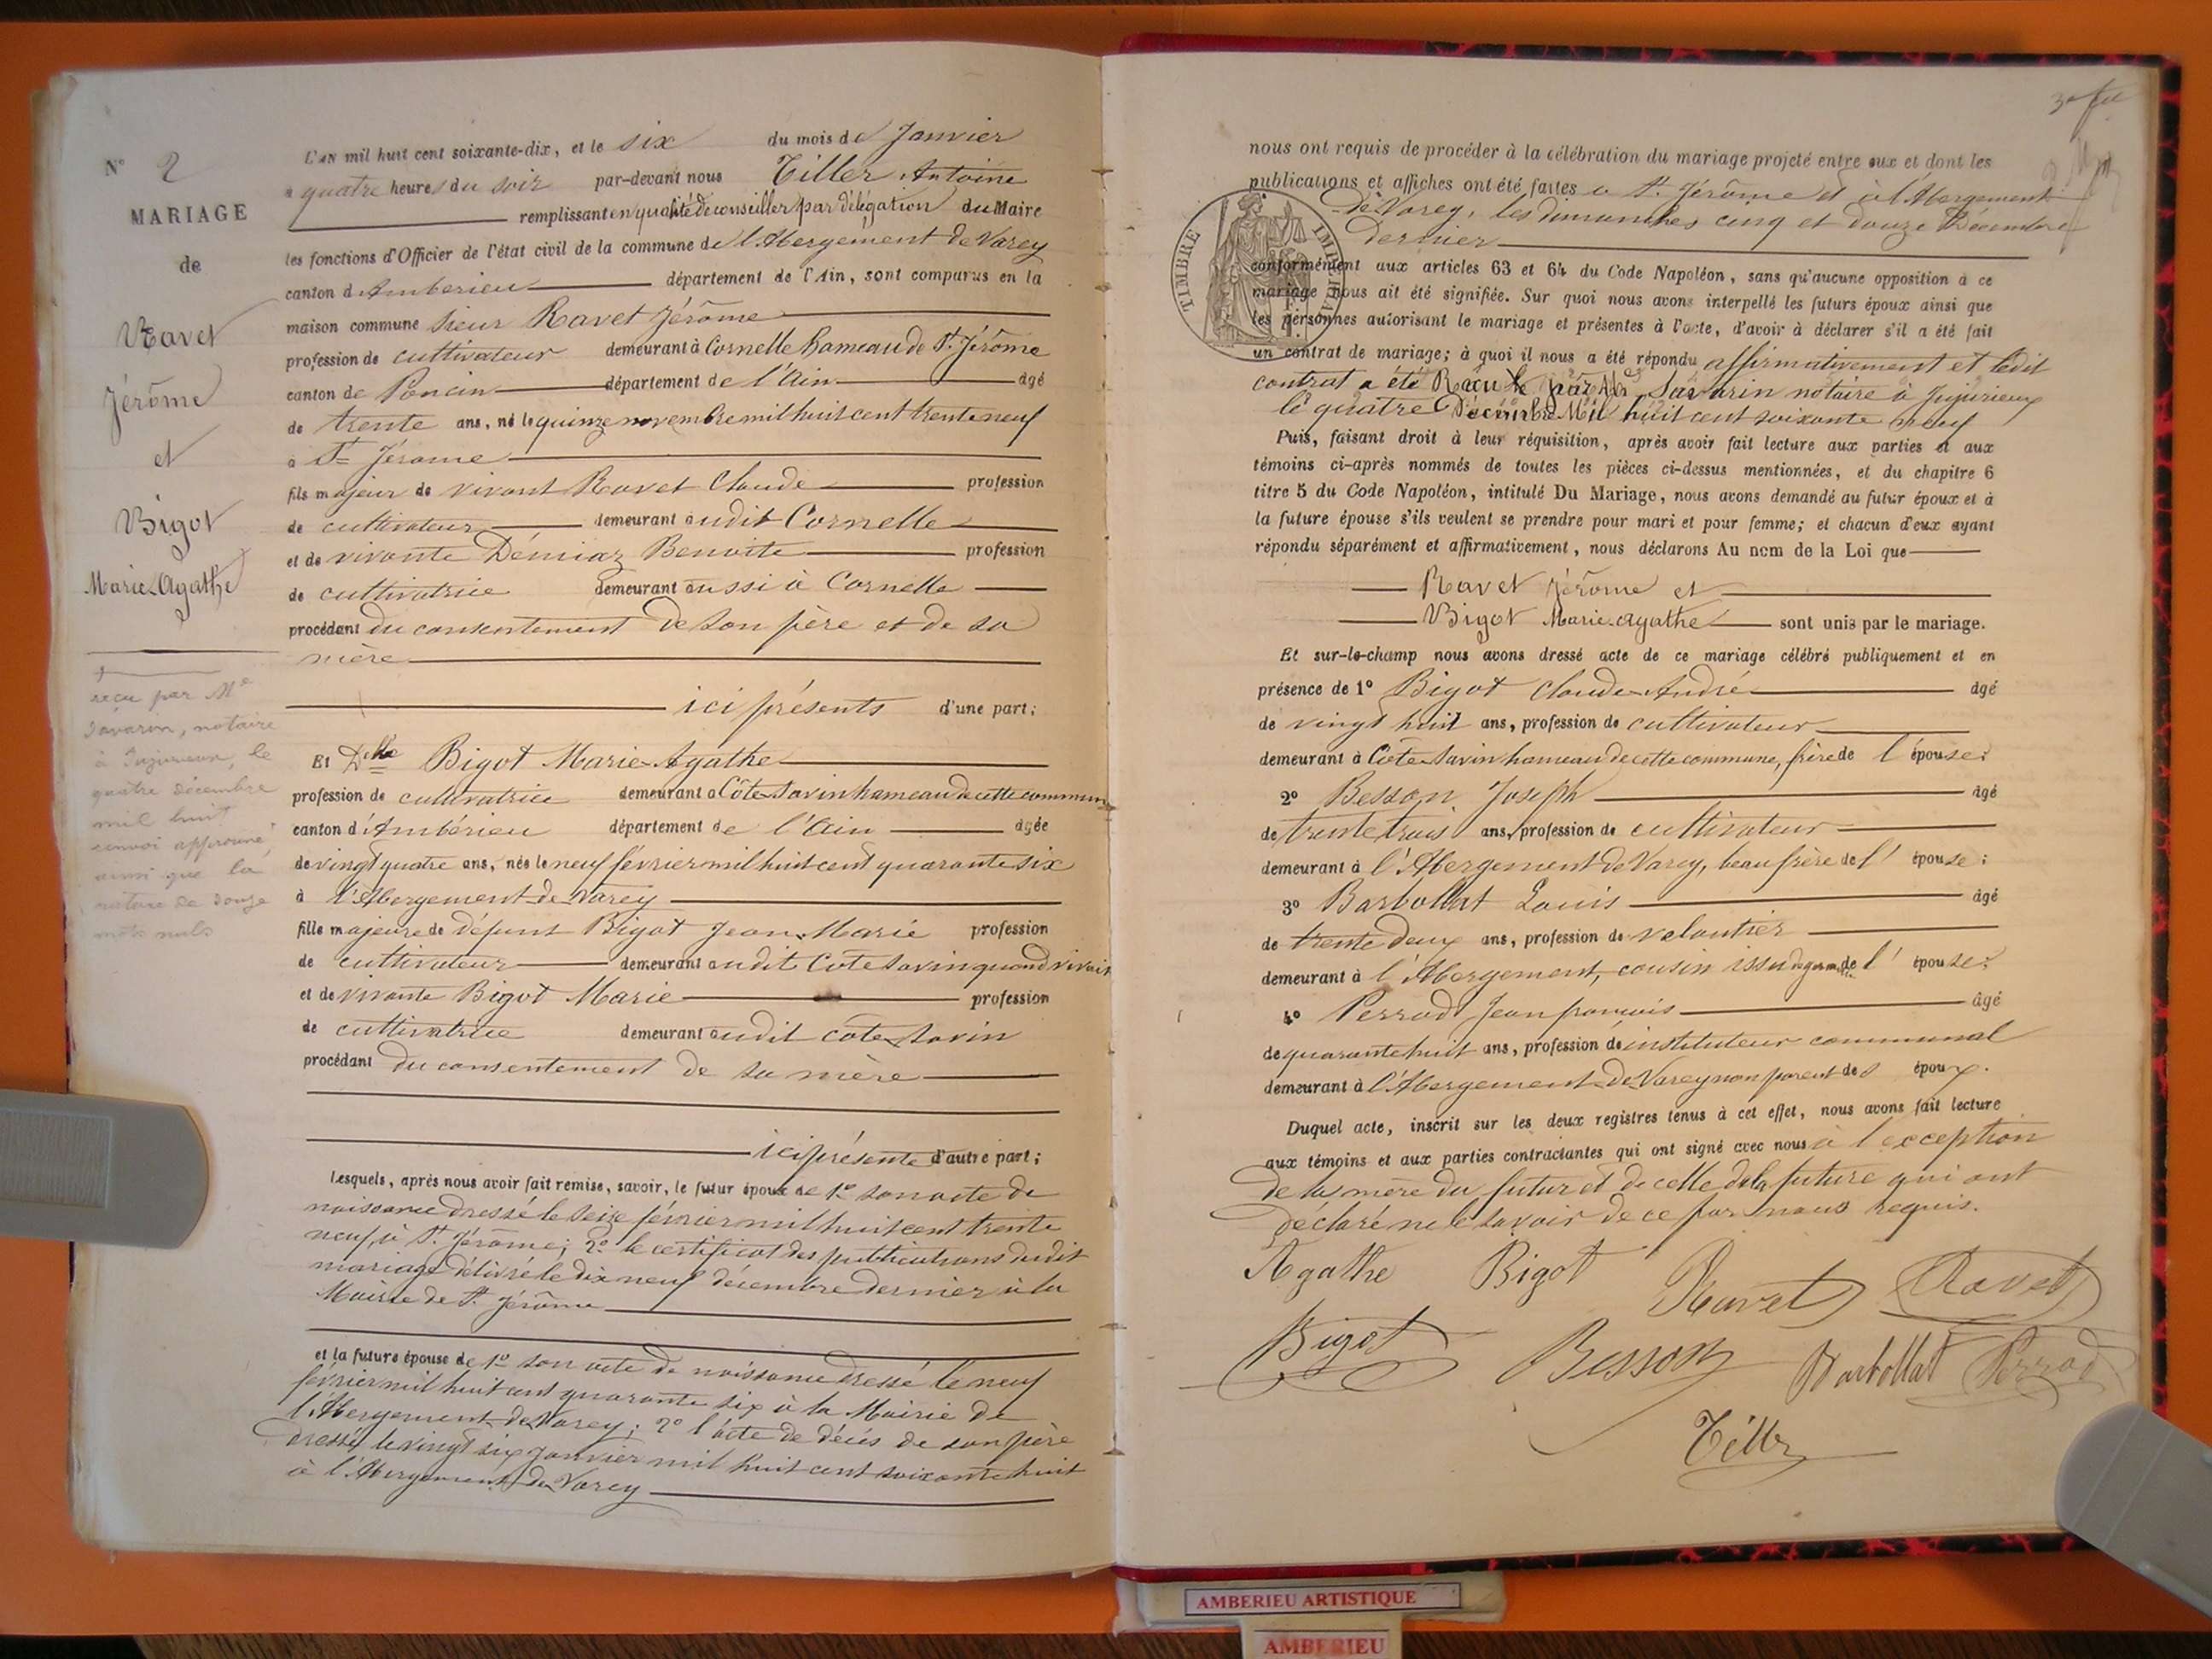 N° 2
MARIAGE
de
Ravet
Jérôme
et
Bigot
Marie-Agathe
reçu par Me
Savarin, notaire
à Jujurieux, le
quatre Décembre
mil huit
renvoi approuvé
ainsi que la
rature de douze
mots nuls
L'AN mil huit cent soixante-dix, et le six du mois de Janvier
à quatre heures du soir par-devant nous Tiller Antoine
remplissant en qualité de conseiller par délégation du Maire
les fonctions d'Officier de l'état civil de la commune de l'Abergement de Varey
canton d'Ambérieu département de l'Ain, sont comparus en la
maison commune sieur Ravet Jérôme
profession de cultivateur demeurant à Cornelle hameau de St. Jérôme
canton de Poncin département de l'Ain âgé
de trente ans, né le quinze novembre mil huit cent trente neuf
à St Jérome
fils majeur de vivant Ravet Claude profession
de cultivateur demeurant audit Cornelle
et de vivante Démiaz Benoite profession
de cultivatrice demeurant aussi à Cornelle
procédant du consentement de son père et de sa
mère
ici présents d'une part;
Et Delle Bigot Marie-Agathe
profession de cultivatrice demeurant à Côte-Savin hameau de cette commune
canton d'Ambérieu département de l'Ain âgée
de vingt quatre ans, née le neuf février mil huit cent quarante six
à l'Abergement-de-Varey
fille majeure de défunt Bigot Jean-Marie profession
de cultivateur demeurant audit Cote Savin quand vivait
et de vivante Bigot Marie profession
de cultivatrice demeurant audit cote-Savin
procédant du consentement de sa mère
ici présente d'autre part;
Lesquels, après nous avoir fait remise, savoir, le futur époux de 1° son acte de
naissance dressé le seize février mil huit cent trente
neuf, à St. Jérôme; 2° le certificat des publications dudit
mariage délivré le dix neuf décembre dernier à la
Mairie de St. Jérôme
et la future épouse de 1° son acte de naissance dressé le neuf
février mil huit cent quarante six à la Mairie de
l'Abergement-de-Varey; 2° l'acte de décès de son père
dressé le vingt six janvier mil huit cent soixante huit
à l'Abergement-de-Varey
nous ont requis de procéder à la célébration du mariage projeté entre eux et dont les
publications et affiches ont été faites à St. Jérôme et à l'Abergement
de Varey, les dimanches cinq et douze Décembre
dernier
TIMBRE IMPERIAL
conformément aux articles 63 et 64 du Code Napoléon, sans qu'aucune opposition à ce
mariage nous ait été signifiée. Sur quoi nous avons interpellé les futurs époux ainsi que
les personnes autorisant le mariage et présentes à l'acte, d'avoir à déclarer s'il a été fait
un contrat de mariage; à quoi il nous a été répondu affirmativement et ledit
contrat a été Recu par Me Savarin notaire à Jujurieux
le quatre Décembre Mil huit cent soixante neuf
Puis, faisant droit à leur réquisition, après avoir fait lecture aux parties et aux
témoins ci-après nommés de toutes les pièces ci-dessus mentionnées, et du chapitre 6
titre 5 du Code Napoléon, intitulé Du Mariage, nous avons demandé au futur époux et à
la future épouse s'ils veulent se prendre pour mari et pour femme; et chacun d'eux ayant
répondu séparément et affirmativement, nous déclarons Au nom de la Loi que
Ravet Jérôme et
Bigot Marie-Agathe sont unis par le mariage.
Et sur-le-champ nous avons dressé acte de ce mariage célébré publiquement et en
présence de 1° Bigot Claude-André âgé
de vingt huit ans, profession de cultivateur
demeurant à Côte-Savin hameau de cette commune, frère de l'épouse;
2° Besson Joseph âgé
de trente trois ans, profession de cultivateur
demeurant à l'Abergement-de-Varey, beau frère de l'épouse;
3° Barbollat Louis âgé
de trente deux ans, profession de
demeurant à l'Abergement, cousin issu de germain de l'épouse;
4° Perrod Jean françois âgé
de quarante huit ans, profession de instituteur communal
demeurant à l'Abergement-de-Varey non parent des époux.
Duquel acte, inscrit sur les deux registres tenus à cet effet, nous avons fait lecture
aux témoins et aux parties contractantes qui ont signé avec nous à l'exception
de la mère du futur et de celle de la future qui ont
déclaré ne le savoir de ce par nous requis.
Agathe Bigot Ravet Ravet
Bigot Besson Barbollat Perrod
Tiller
AMBERIEU ARTISTIQUE
AMBERIEU